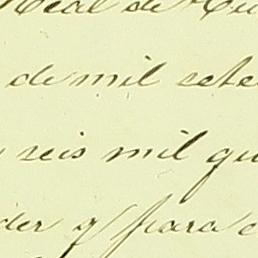 Real de
de mil sete
reis mil qu
der q para